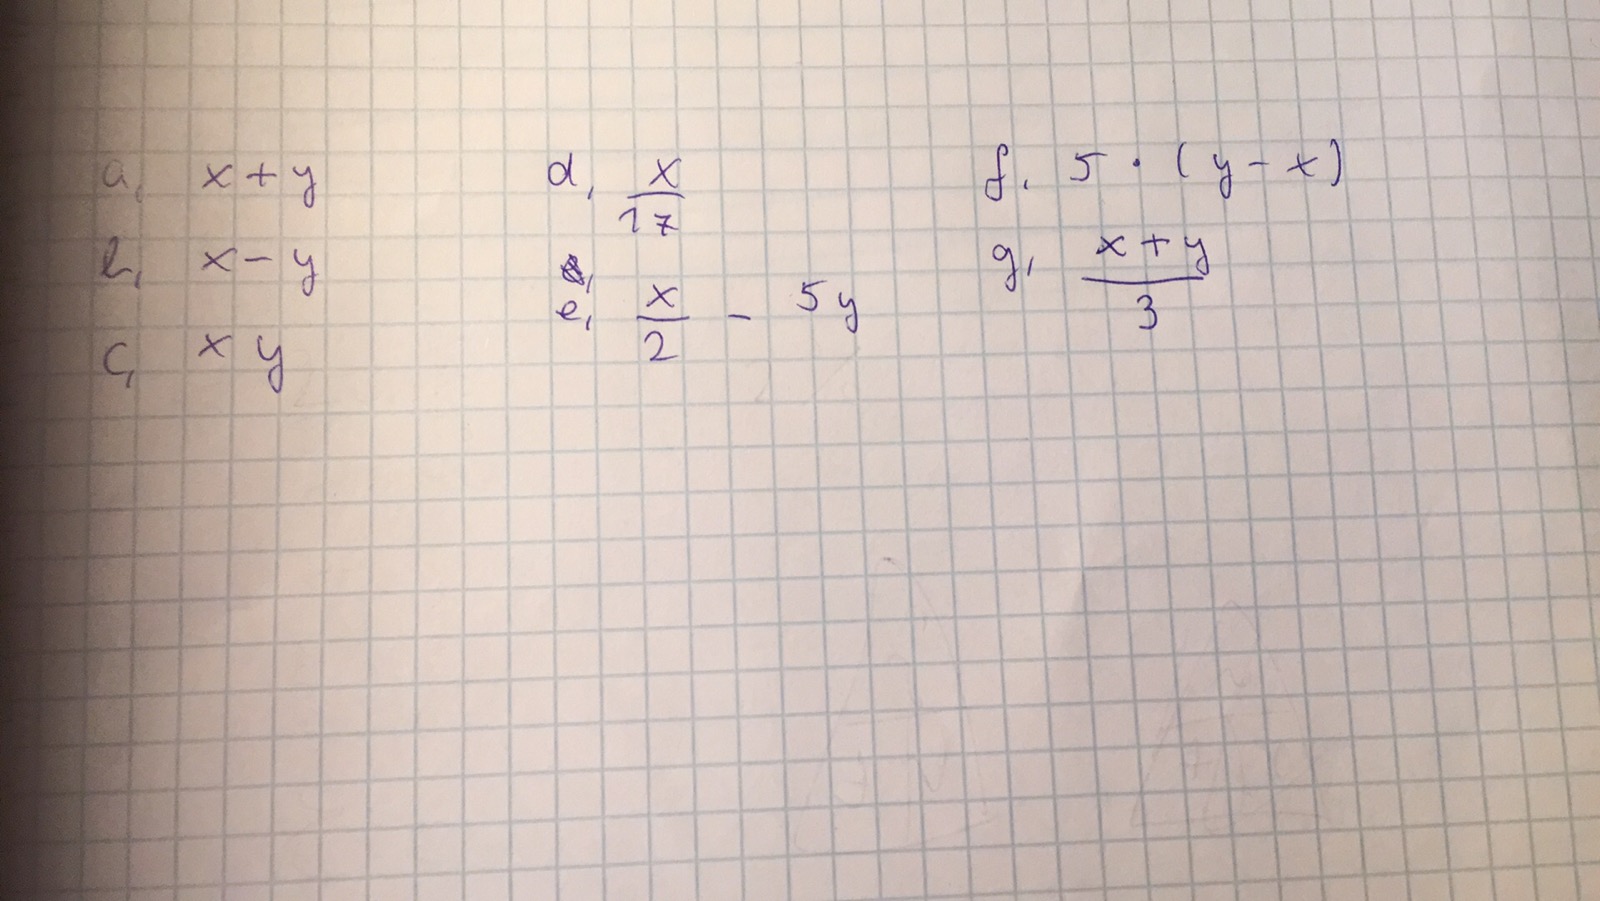 a, x + y
b, x - y
c, x y
d, x/17
e, x/2 - 5y
f. 5 · (y - x)
g, (x + y)/3